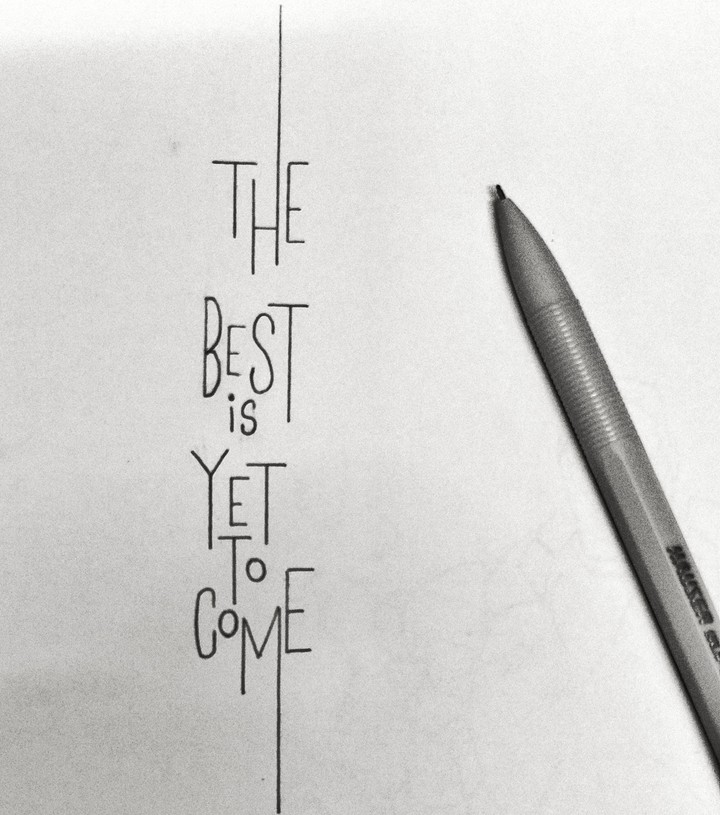 THE
BEST
is
YET
To
CoME
HAUSER